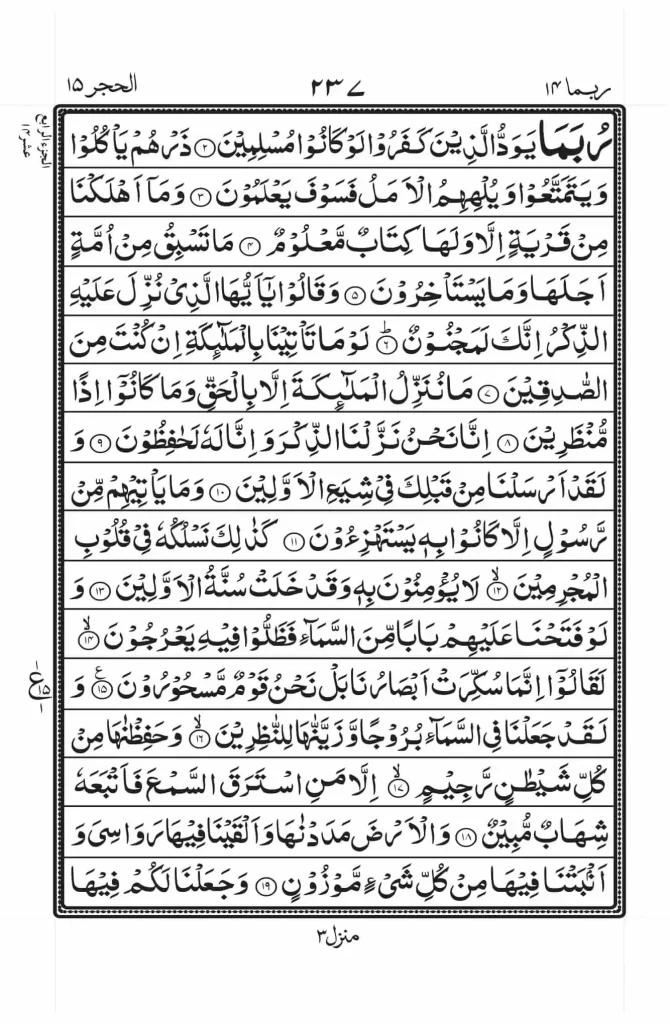 ربما ١٤ ٢٣٧ الحجر ١٥
الجزء الرابع
عشر ١٤
رُبَمَا يَوَدُّ الَّذِيْنَ كَفَرُوْا لَوْ كَانُوْا مُسْلِمِيْنَ ۝٢ ذَرْهُمْ يَاْكُلُوْا
وَيَتَمَتَّعُوْا وَيُلْهِهِمُ الْاَمَلُ فَسَوْفَ يَعْلَمُوْنَ ۝٣ وَمَاۤ اَهْلَكْنَا
مِنْ قَرْيَةٍ اِلَّا وَلَهَا كِتَابٌ مَّعْلُوْمٌ ۝٤ مَا تَسْبِقُ مِنْ اُمَّةٍ
اَجَلَهَا وَمَا يَسْتَاْخِرُوْنَ ۝٥ وَقَالُوْا يٰۤاَيُّهَا الَّذِىْ نُزِّلَ عَلَيْهِ
الذِّكْرُ اِنَّكَ لَمَجْنُوْنٌ ؕ۝٦ لَوْ مَا تَاْتِيْنَا بِالْمَلٰٓئِكَةِ اِنْ كُنْتَ مِنَ
الصّٰدِقِيْنَ ۝٧ مَا نُنَزِّلُ الْمَلٰٓئِكَةَ اِلَّا بِالْحَقِّ وَمَا كَانُوْۤا اِذًا
مُّنْظَرِيْنَ ۝٨ اِنَّا نَحْنُ نَزَّلْنَا الذِّكْرَ وَاِنَّا لَهٗ لَحٰفِظُوْنَ ۝٩ وَ
لَقَدْ اَرْسَلْنَا مِنْ قَبْلِكَ فِىْ شِيَعِ الْاَوَّلِيْنَ ۝١٠ وَمَا يَاْتِيْهِمْ مِّنْ
رَّسُوْلٍ اِلَّا كَانُوْا بِهٖ يَسْتَهْزِءُوْنَ ۝١١ كَذٰلِكَ نَسْلُكُهٗ فِىْ قُلُوْبِ
الْمُجْرِمِيْنَ ۙ۝١٢ لَا يُؤْمِنُوْنَ بِهٖ وَقَدْ خَلَتْ سُنَّةُ الْاَوَّلِيْنَ ۝١٣ وَ
لَوْ فَتَحْنَا عَلَيْهِمْ بَابًا مِّنَ السَّمَآءِ فَظَلُّوْا فِيْهِ يَعْرُجُوْنَ ۙ۝١٤
لَقَالُوْۤا اِنَّمَا سُكِّرَتْ اَبْصَارُنَا بَلْ نَحْنُ قَوْمٌ مَّسْحُوْرُوْنَ ۝١٥ ع وَ
ع ١٥
لَقَدْ جَعَلْنَا فِى السَّمَآءِ بُرُوْجًا وَّزَيَّنّٰهَا لِلنّٰظِرِيْنَ ۙ۝١٦ وَحَفِظْنٰهَا مِنْ
كُلِّ شَيْطٰنٍ رَّجِيْمٍ ۙ۝١٧ اِلَّا مَنِ اسْتَرَقَ السَّمْعَ فَاَتْبَعَهٗ
شِهَابٌ مُّبِيْنٌ ۝١٨ وَالْاَرْضَ مَدَدْنٰهَا وَاَلْقَيْنَا فِيْهَا رَوَاسِىَ وَ
اَنْۢبَتْنَا فِيْهَا مِنْ كُلِّ شَىْءٍ مَّوْزُوْنٍ ۝١٩ وَجَعَلْنَا لَكُمْ فِيْهَا
منزل ٣